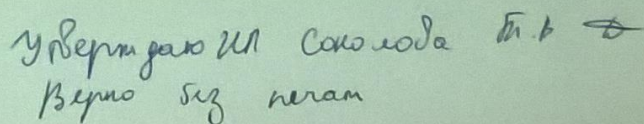 Утверждаю ИП Соколова Т.В
Верно без печати